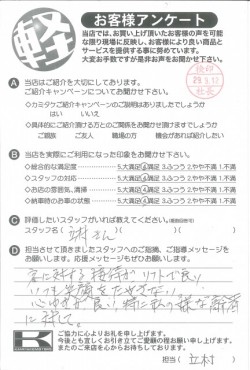 軽
お客様アンケート
当店では、お買い上げ頂いたお客様の声を可能
な限り現場に反映し、お客様により良い商品と
サービスを提供する事に努めています。
大変お手数ですが是非お声をお聞かせ下さい。
29.3.12
社長
A 当店はご紹介を大切にしております。
ご紹介キャンペーンについてお聞かせ下さい。
◇カミタケご紹介キャンペーンのご説明はありましたでしょうか
はい いいえ
◇具体的にご紹介頂ける方とのご関係をお聞かせ頂けますでしょうか
ご親族 ご友人 職場の方 機会があれば紹介したい
B 当店を実際にご利用になった印象をお聞かせ下さい。
◇総合的な満足度 5.大満足 4.満足 3.ふつう 2.やや不満 1.不満
◇スタッフの対応 5.大満足 4.満足 3.ふつう 2.やや不満 1.不満
◇お店の雰囲気、清掃 5.大満足 4.満足 3.ふつう 2.やや不満 1.不満
◇納車時のお車の状態 5.大満足 4.満足 3.ふつう 2.やや不満 1.不満
C 評価したいスタッフがいれば教えてください。
スタッフ名( 立村さん )
D 担当させて頂きましたスタッフへのご指摘、ご指導メッセージを
お願いします。応援メッセージもぜひお願いします。
客に対する接待がソフトで良り
いつも笑顔をたやさない
心やせが良い特に私の様な高齢者
に対して。
K
ご協力に心よりお礼を申し上げます。
今後とも宜しくお引き立てご愛顧の程お願い申し上げます。
またのご来店を心からお待ちしております。
担当( 立村 )